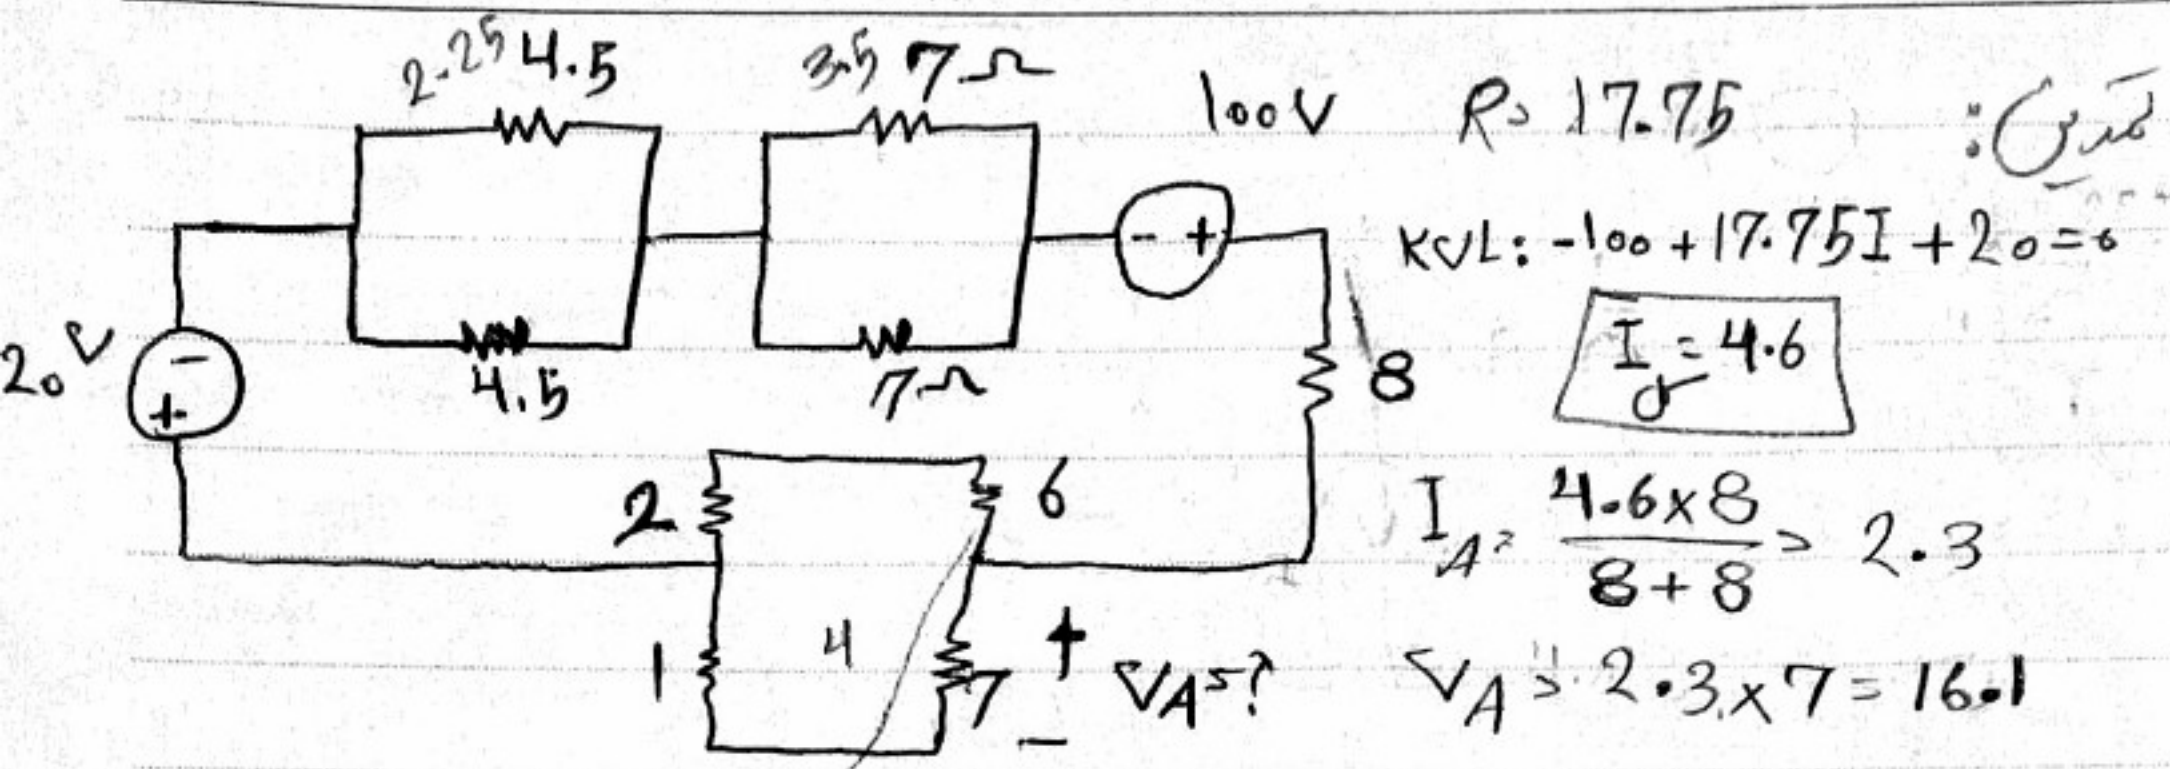 تمرین:
2.25 4.5
3.5 7Ω
100V
R= 17.75
KVL: -100 + 17.75I + 20 = 0
- +
20V
-
+
4.5
7Ω
8
I = 4.6
2
6
I_A = 4.6x8 / 8+8 = 2.3
1
4
7
+
-
V_A=?
V_A = 2.3 x 7 = 16.1